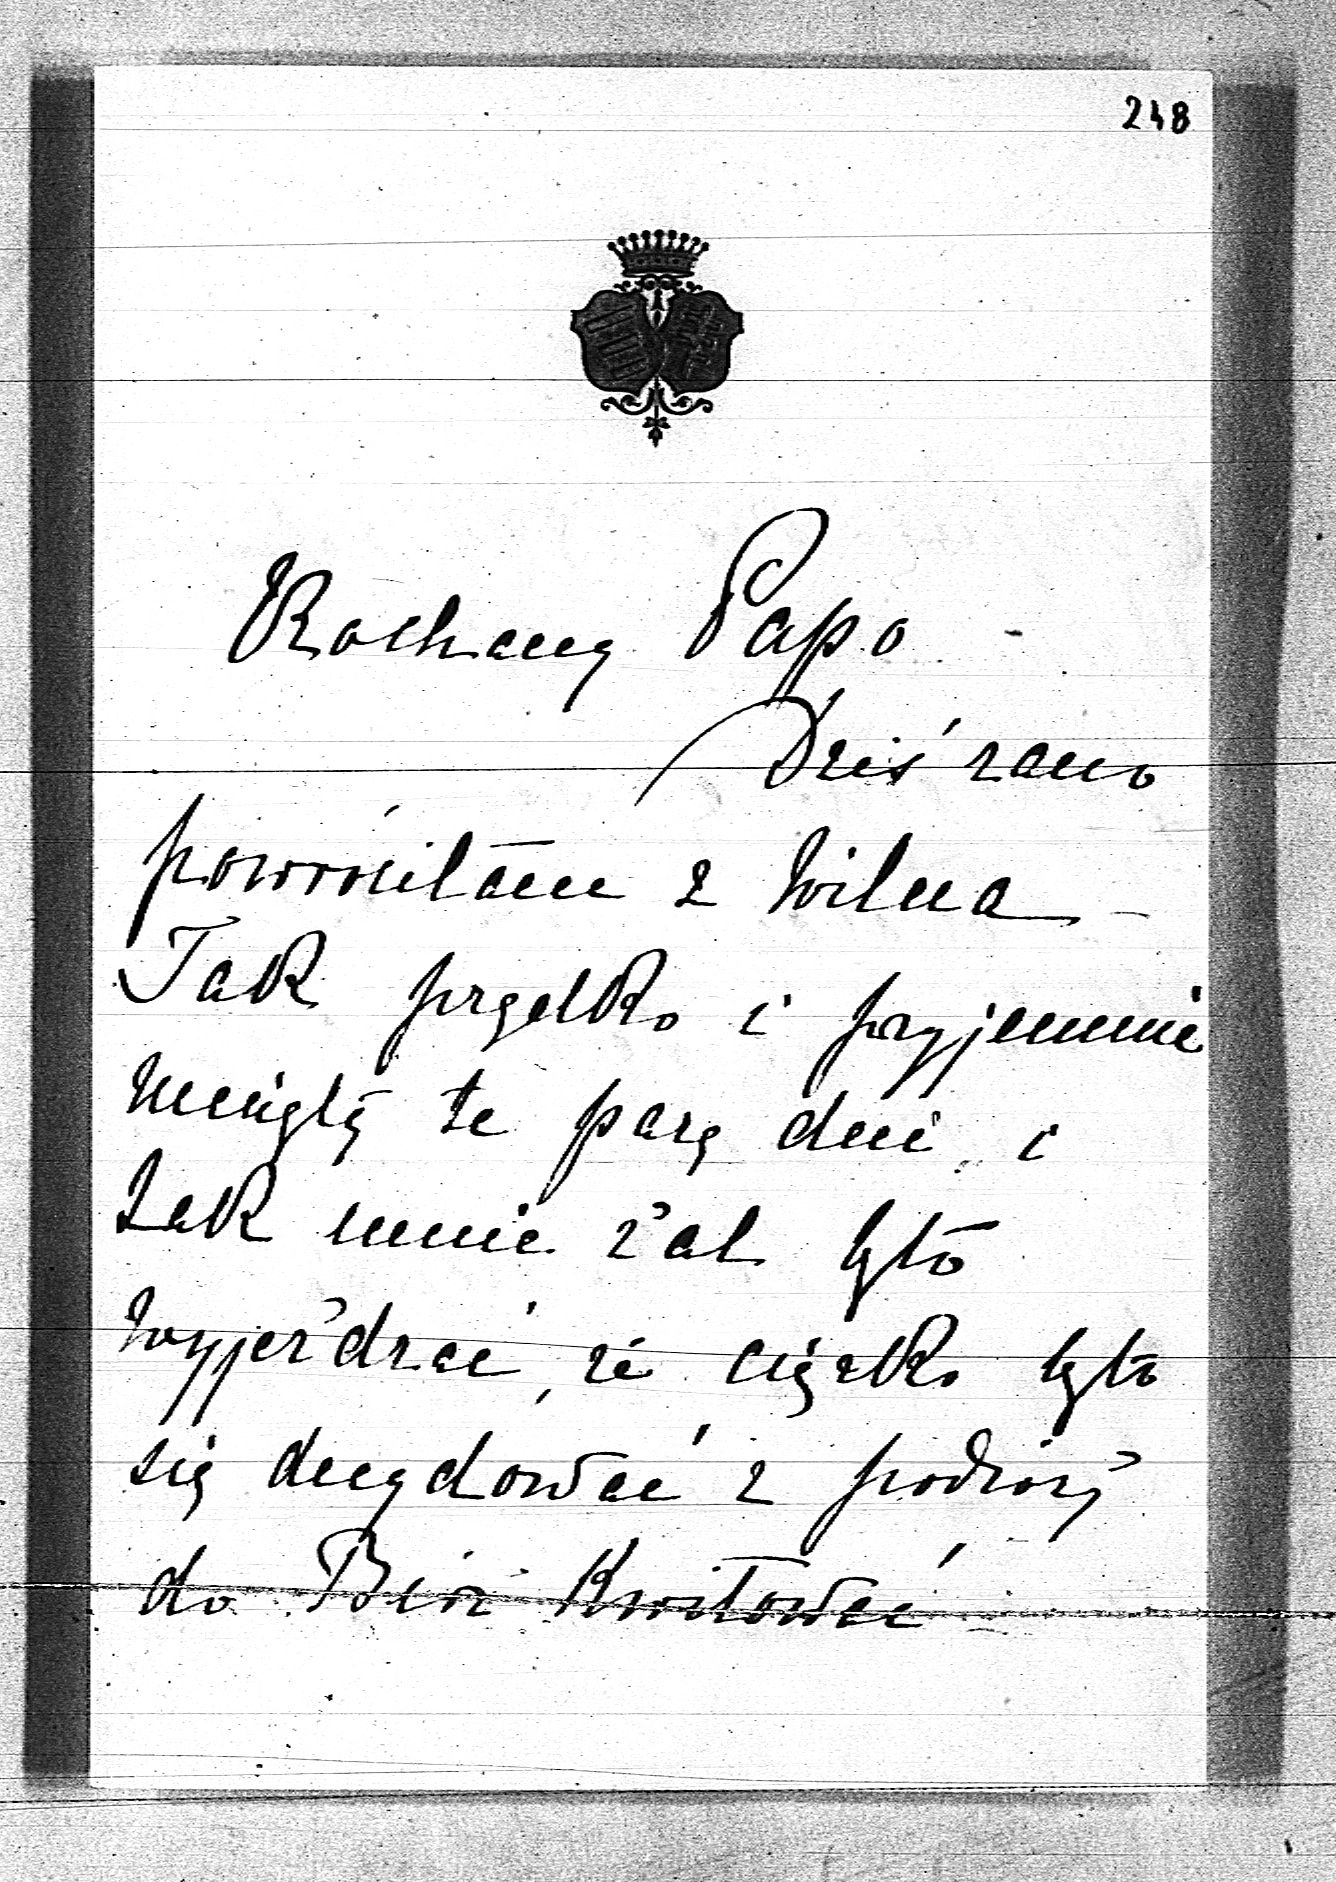 248
Kochany Papo -
Dziś rano
powróciłam z Wilna -
Tak prędko i przyjemnie
minęły te parę dni i
tak mnie żal było
wyjeżdzać, że ciężko było
się decydować z podróży
do Birż Kwitować -